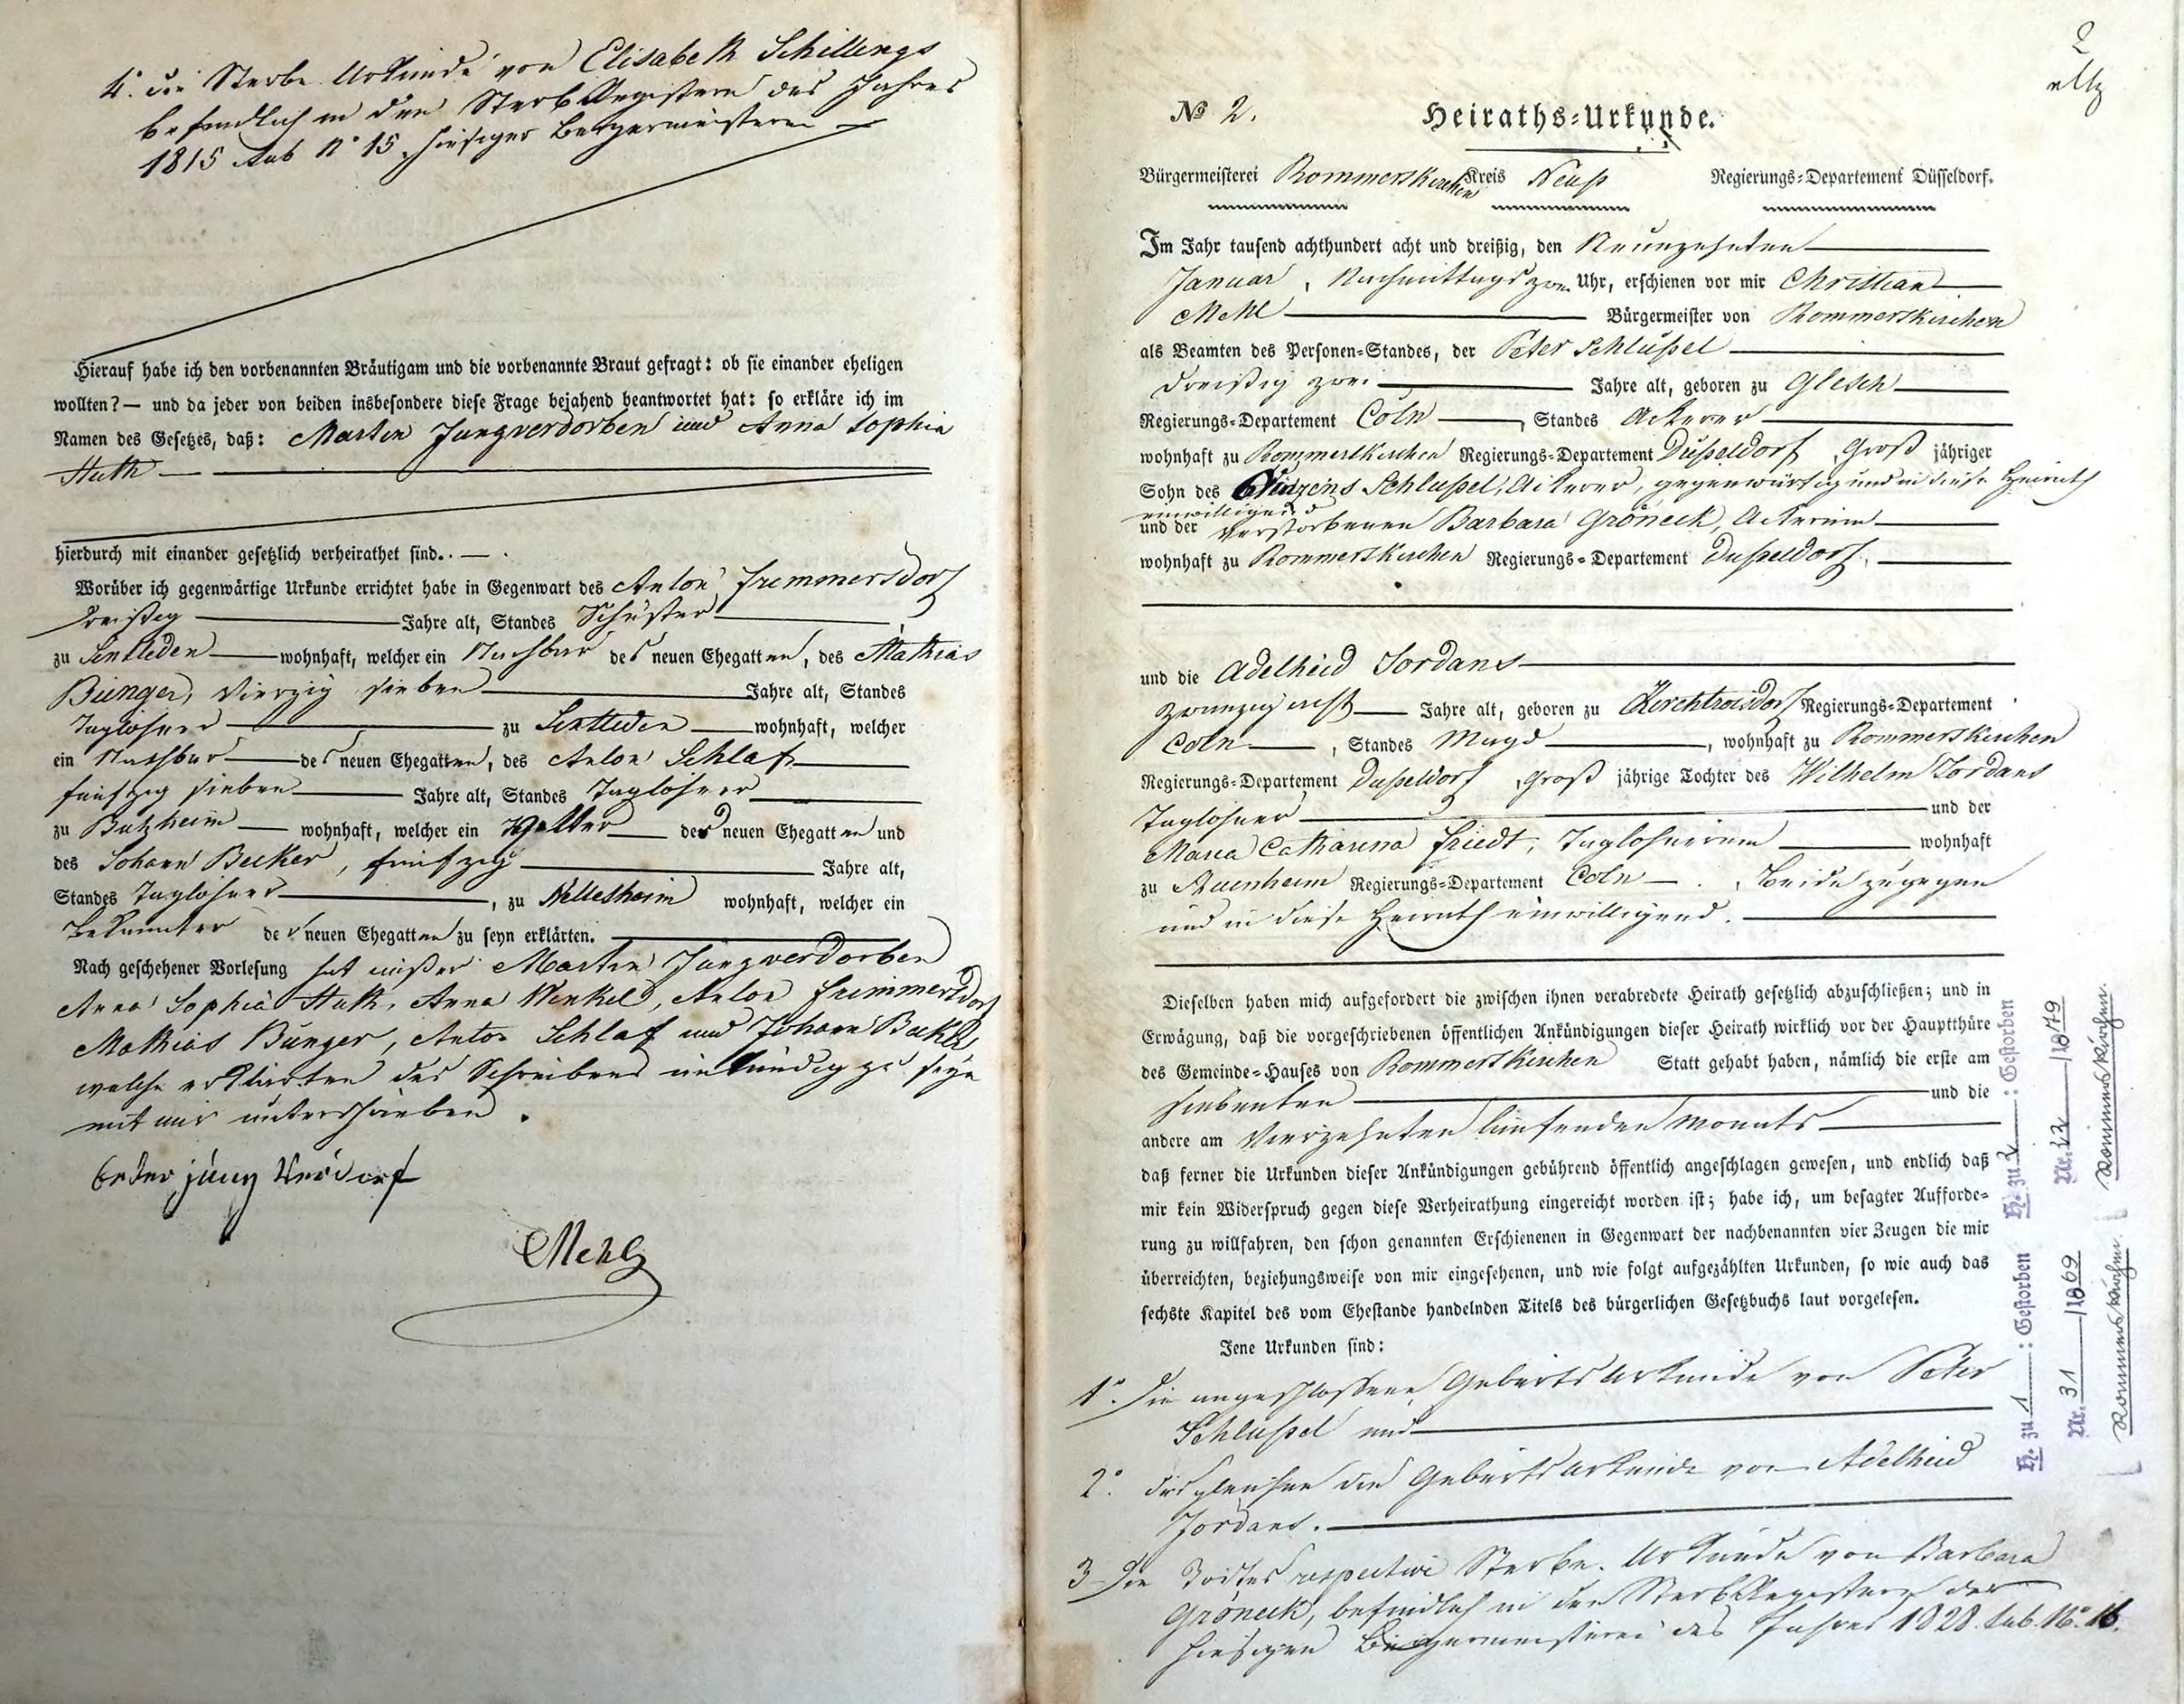 4. die Sterbe Urkunde von Elisabeth Schillings
befindlich in den Sterb Registern des Jahres
1815 sub N° 15 hiesiger Bürgermeisterei
Hierauf habe ich den vorbenannten Bräutigam und die vorbenannte Braut gefragt: ob sie einander eheligen
wollten? — und da jeder von beiden insbesondere diese Frage bejahend beantwortet hat: so erkläre ich im
Namen des Gesetzes, daß: Martin Jungverdorben und Anna Sophia
Huth
hierdurch mit einander gesetzlich verheirathet sind.
Worüber ich gegenwärtige Urkunde errichtet habe in Gegenwart des Anton Frimmersdorf
dreißig Jahre alt, Standes Schuster
zu Sinsteden wohnhaft, welcher ein Nachbar des neuen Ehegatten, des Mathias
Bünger, vierzig sieben Jahre alt, Standes
Taglöhner zu Sinsteden wohnhaft, welcher
ein Nachbar des neuen Ehegatten, des Anton Schlaf
fünfzig sieben Jahre alt, Standes Taglöhner
zu Butzheim wohnhaft, welcher ein der neuen Ehegatten und
des Johann Becker, fünfzig Jahre alt,
Standes Taglöhner, zu Nettesheim wohnhaft, welcher ein
Bekannter der neuen Ehegatten zu seyn erklärten.
Nach geschehener Vorlesung hat außer Martin Jungverdorben
Anna Sophia Huth, Anna Winkel, Anton Frimmersdorf
Mathias Bünger, Anton Schlaf und Johann Becker
welche erklärten des Schreibens unkündig zu seyn
mit mir unterschrieben.
jung Verdorf
Mehl
2
N° 2. Heiraths-Urkunde.
Bürgermeisterei Rommerskirchen Kreis Neuß Regierungs-Departement Düsseldorf.
Im Jahr tausend achthundert acht und dreißig, den Neunzehnten
Januar, Nachmittags zwei Uhr, erschienen vor mir Christian
Mehl Bürgermeister von Rommerskirchen
als Beamten des Personen-Standes, der Peter Schlüßel
dreißig zwei Jahre alt, geboren zu Glesch
Regierungs-Departement Cöln, Standes Ackerer
wohnhaft zu Rommerskirchen Regierungs-Departement Düßeldorf, Groß jähriger
Sohn des Winzens Schlüßel, Ackerer, gegenwärtig und in diese Heirath
einwilligend
und der verstorbenen Barbara Gröneck, Ackerin
wohnhaft zu Rommerskirchen Regierungs-Departement Düßeldorf,
und die Adelheid Jordans
zwanzig acht Jahre alt, geboren zu Kirchtroisdorf Regierungs-Departement
Coln, Standes Magd, wohnhaft zu Rommerskirchen
Regierungs-Departement Düßeldorf, Groß jährige Tochter des Wilhelm Jordans
Taglöhner und der
Maria Catharina Friedt, Taglöhnerin wohnhaft
zu Auenheim Regierungs-Departement Coln. Beide zugegen
und in diese Heirath einwilligend.
Dieselben haben mich aufgefordert die zwischen ihnen verabredete Heirath gesetzlich abzuschließen; und in
Erwägung, daß die vorgeschriebenen öffentlichen Ankündigungen dieser Heirath wirklich vor der Hauptthüre
des Gemeinde-Hauses von Rommerskirchen Statt gehabt haben, nämlich die erste am
siebenten und die
andere am vierzehnten laufenden Monats
daß ferner die Urkunden dieser Ankündigungen gebührend öffentlich angeschlagen gewesen, und endlich daß
mir kein Widerspruch gegen diese Verheirathung eingereicht worden ist; habe ich, um besagter Aufforde-
rung zu willfahren, den schon genannten Erschienenen in Gegenwart der nachbenannten vier Zeugen die mir
überreichten, beziehungsweise von mir eingesehenen, und wie folgt aufgezählten Urkunden, so wie auch das
sechste Kapitel des vom Ehestande handelnden Titels des bürgerlichen Gesetzbuchs laut vorgelesen.
Jene Urkunden sind:
1° die angeschlossene Geburts Urkunde von Peter
Schlüßel und
2° desgleichen die Geburts Urkunde von Adelheid
Jordans.
3 die respective Sterbe Urkunde von Barbara
Gröneck, befindlich in den Sterb Registern der
hiesigen Bürgermeisterei des Jahres 1828 sub N° 16.
H. zu 1: Gestorben
Nr. 31 /1869
Rommerskirchen
H. zu 2: Gestorben
Nr. 22 /1879
Rommerskirchen.